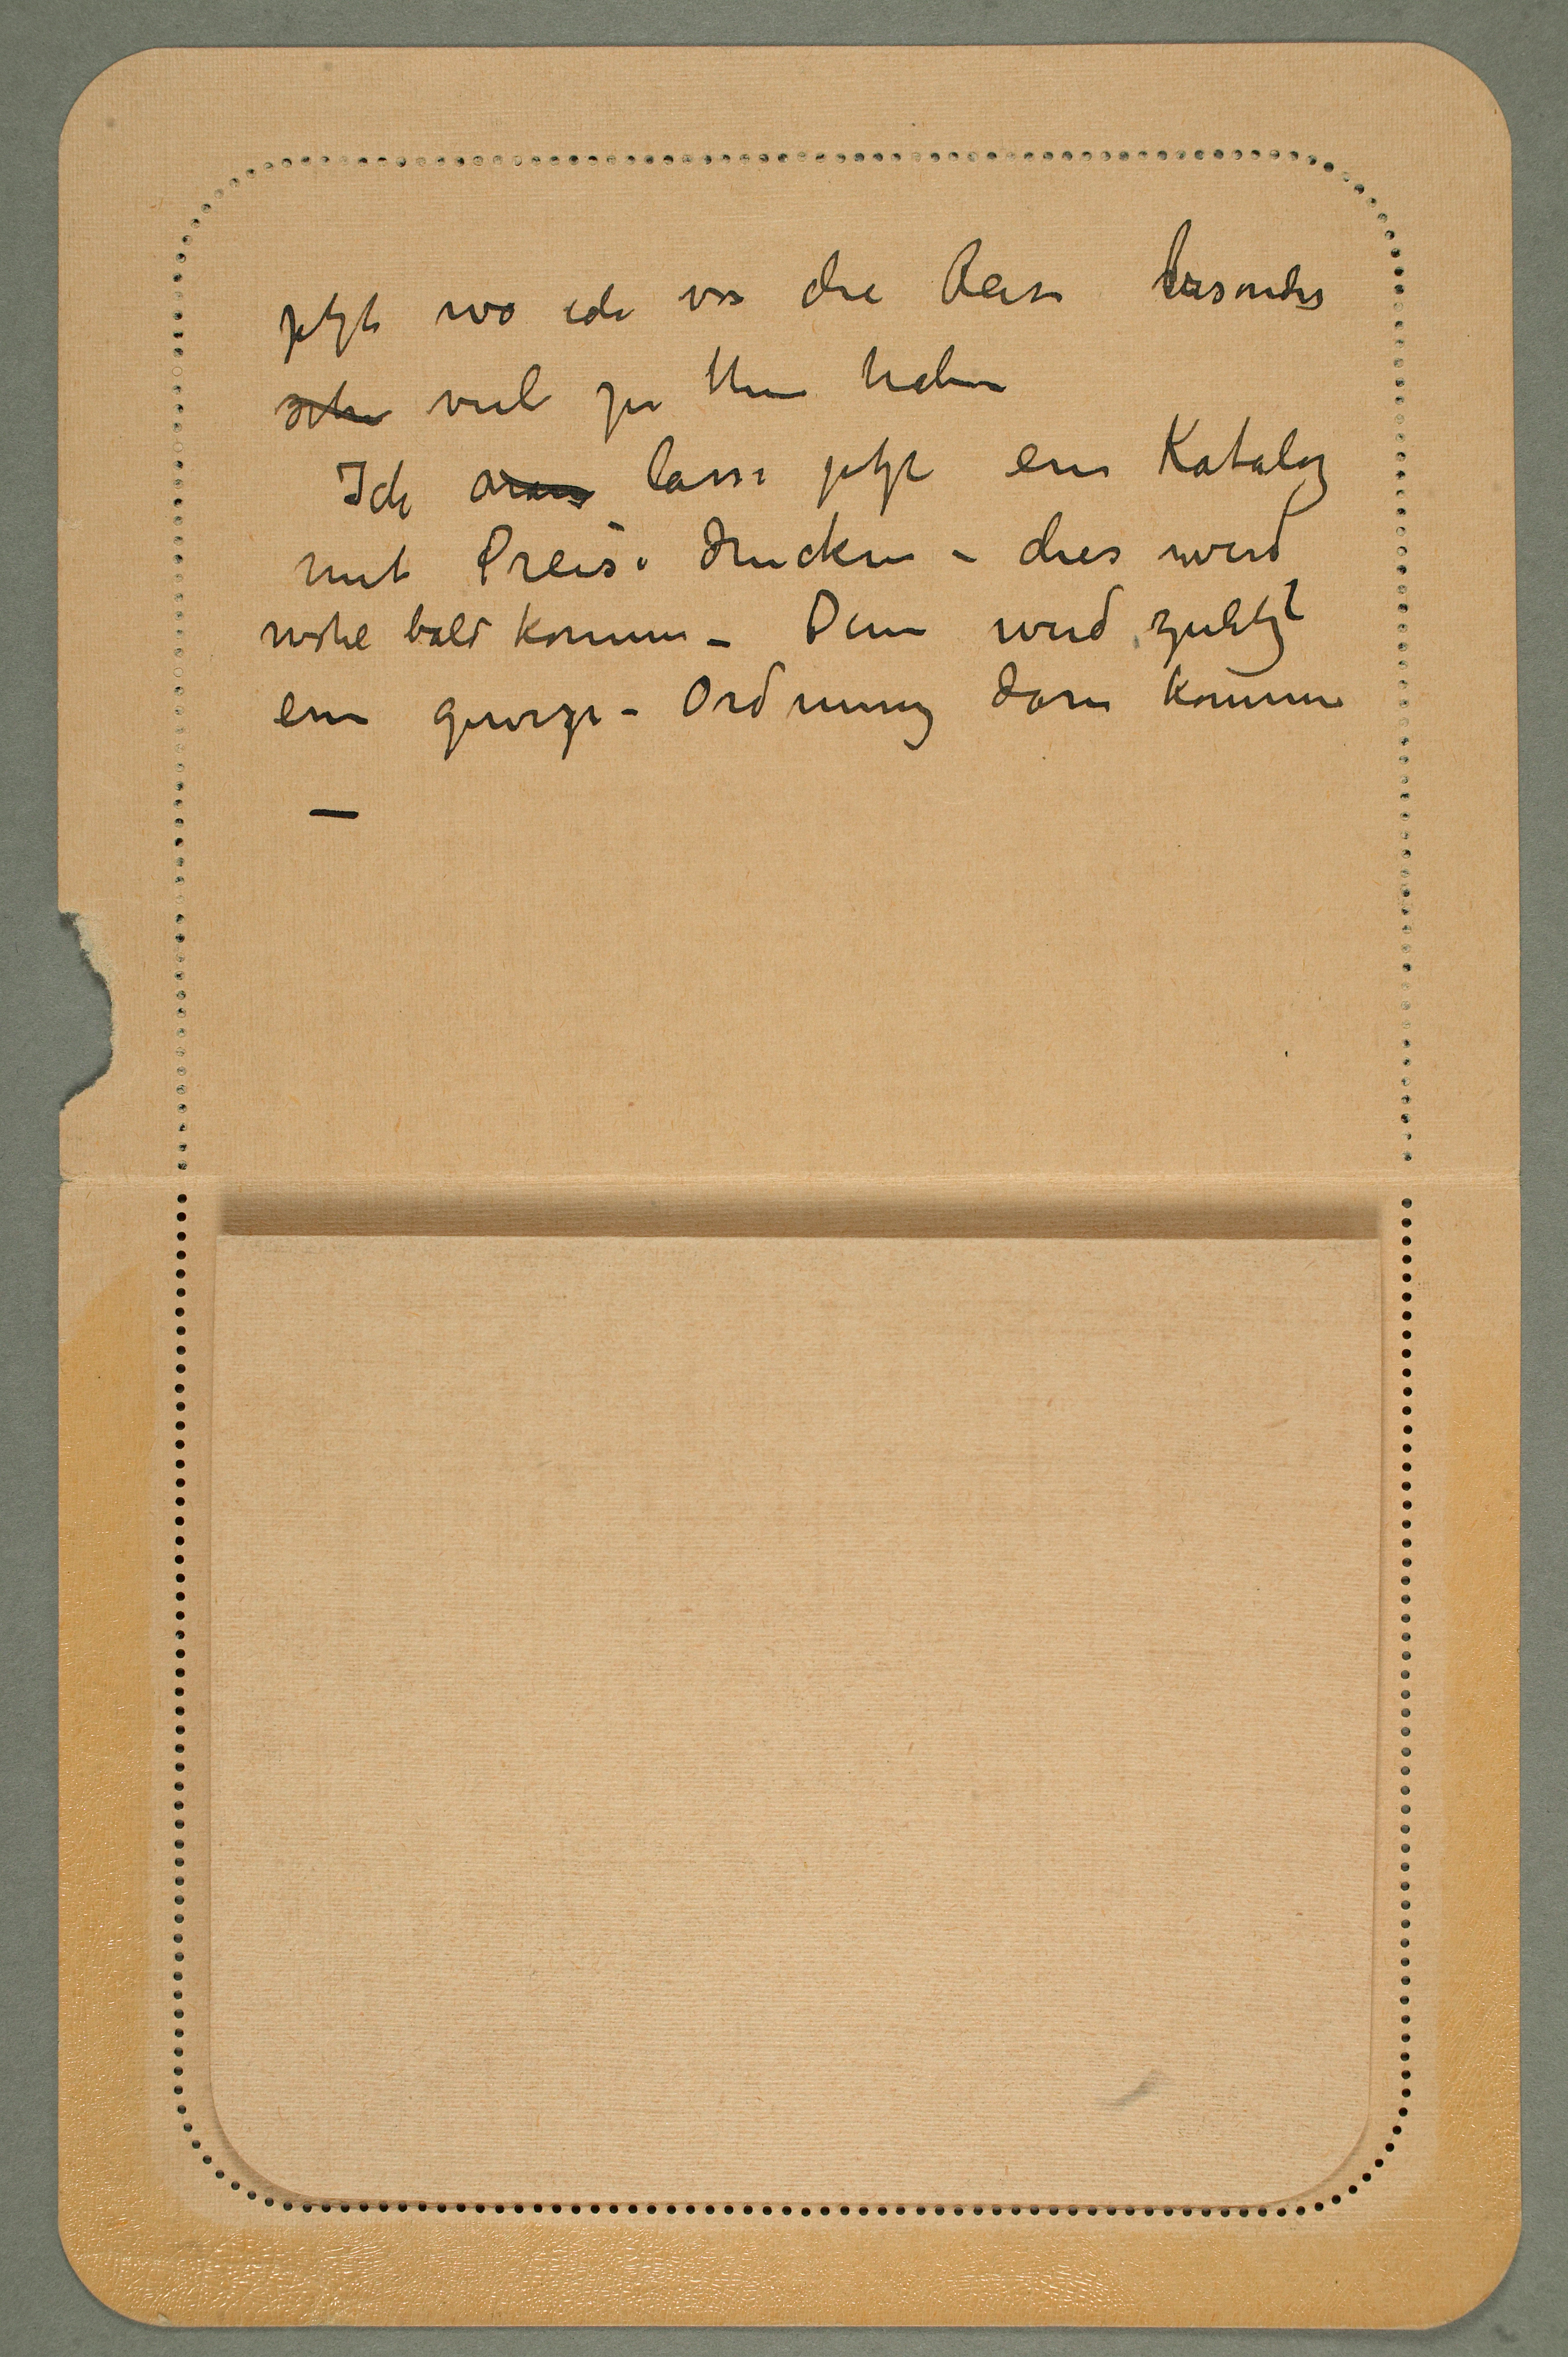 jetzt wo ich vor die Reise besonders
sehr viel zu thun haben
Ich lasse jetzt ein Katalog
mit Preise drucken – dies wird
wohl bald kommen – Dann wird zuletzt
ein gewisse – Ordnung darin kommen
—